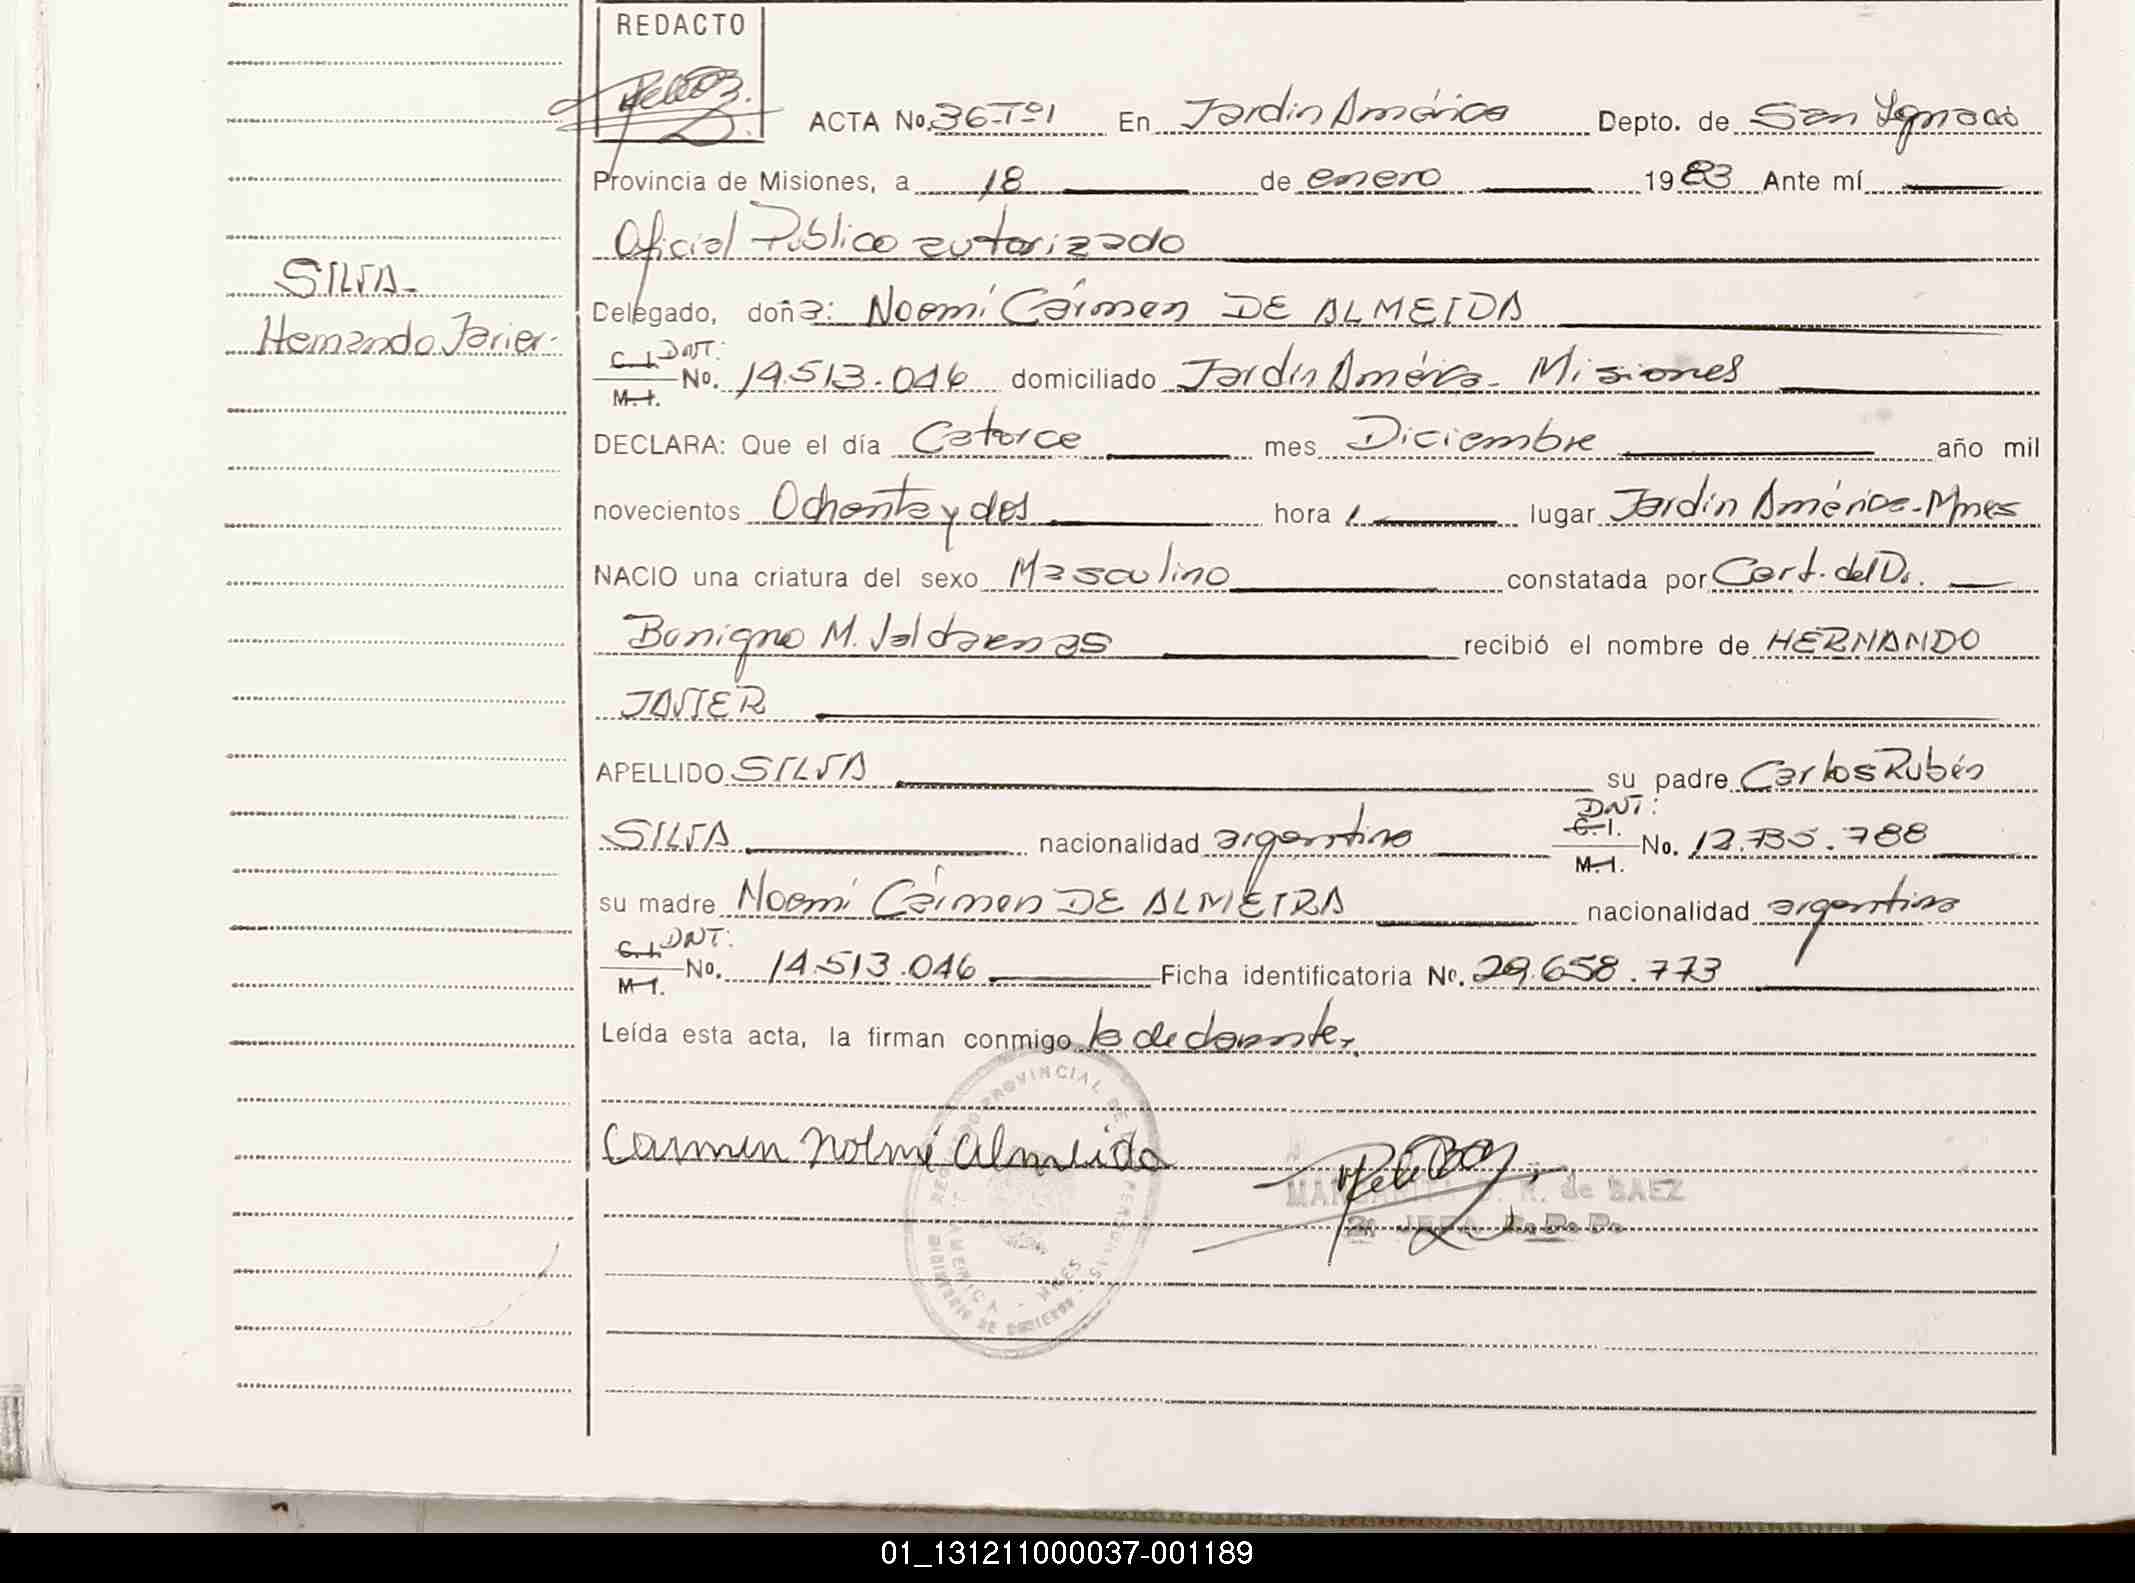 REDACTO
ACTA No. 36-Tº1 En Jardín América Depto. de San Ignacio
Provincia de Misiones, a 18 de enero 1983 Ante mí
Oficial Público autorizado
SILVA.
Delegado, doña: Noemí Cármen DE ALMEIDA
Hernando Javier.
C.I. DNI:
M.I. No. 14.513.046 domiciliado Jardín América - Misiones
DECLARA: Que el día Catorce mes Diciembre año mil
novecientos Ochenta y dos hora 1 lugar Jardín América - Mnes
NACIO una criatura del sexo Masculino constatada por Cert. del Dr.
Benigno M. recibió el nombre de HERNANDO
JAVIER
APELLIDO SILVA su padre Carlos Rubén
SILVA nacionalidad argentino DNI: C.I. M.I. No. 12.735.788
su madre Noemí Cármen DE ALMEIRA nacionalidad argentina
C.I. DNI:
M.I. No. 14.513.046 Ficha identificatoria No. 29.658.773
Leída esta acta, la firman conmigo la declarante.
Carmen Noemí Almeida
R. de BAEZ
JEFA
01_131211000037-001189